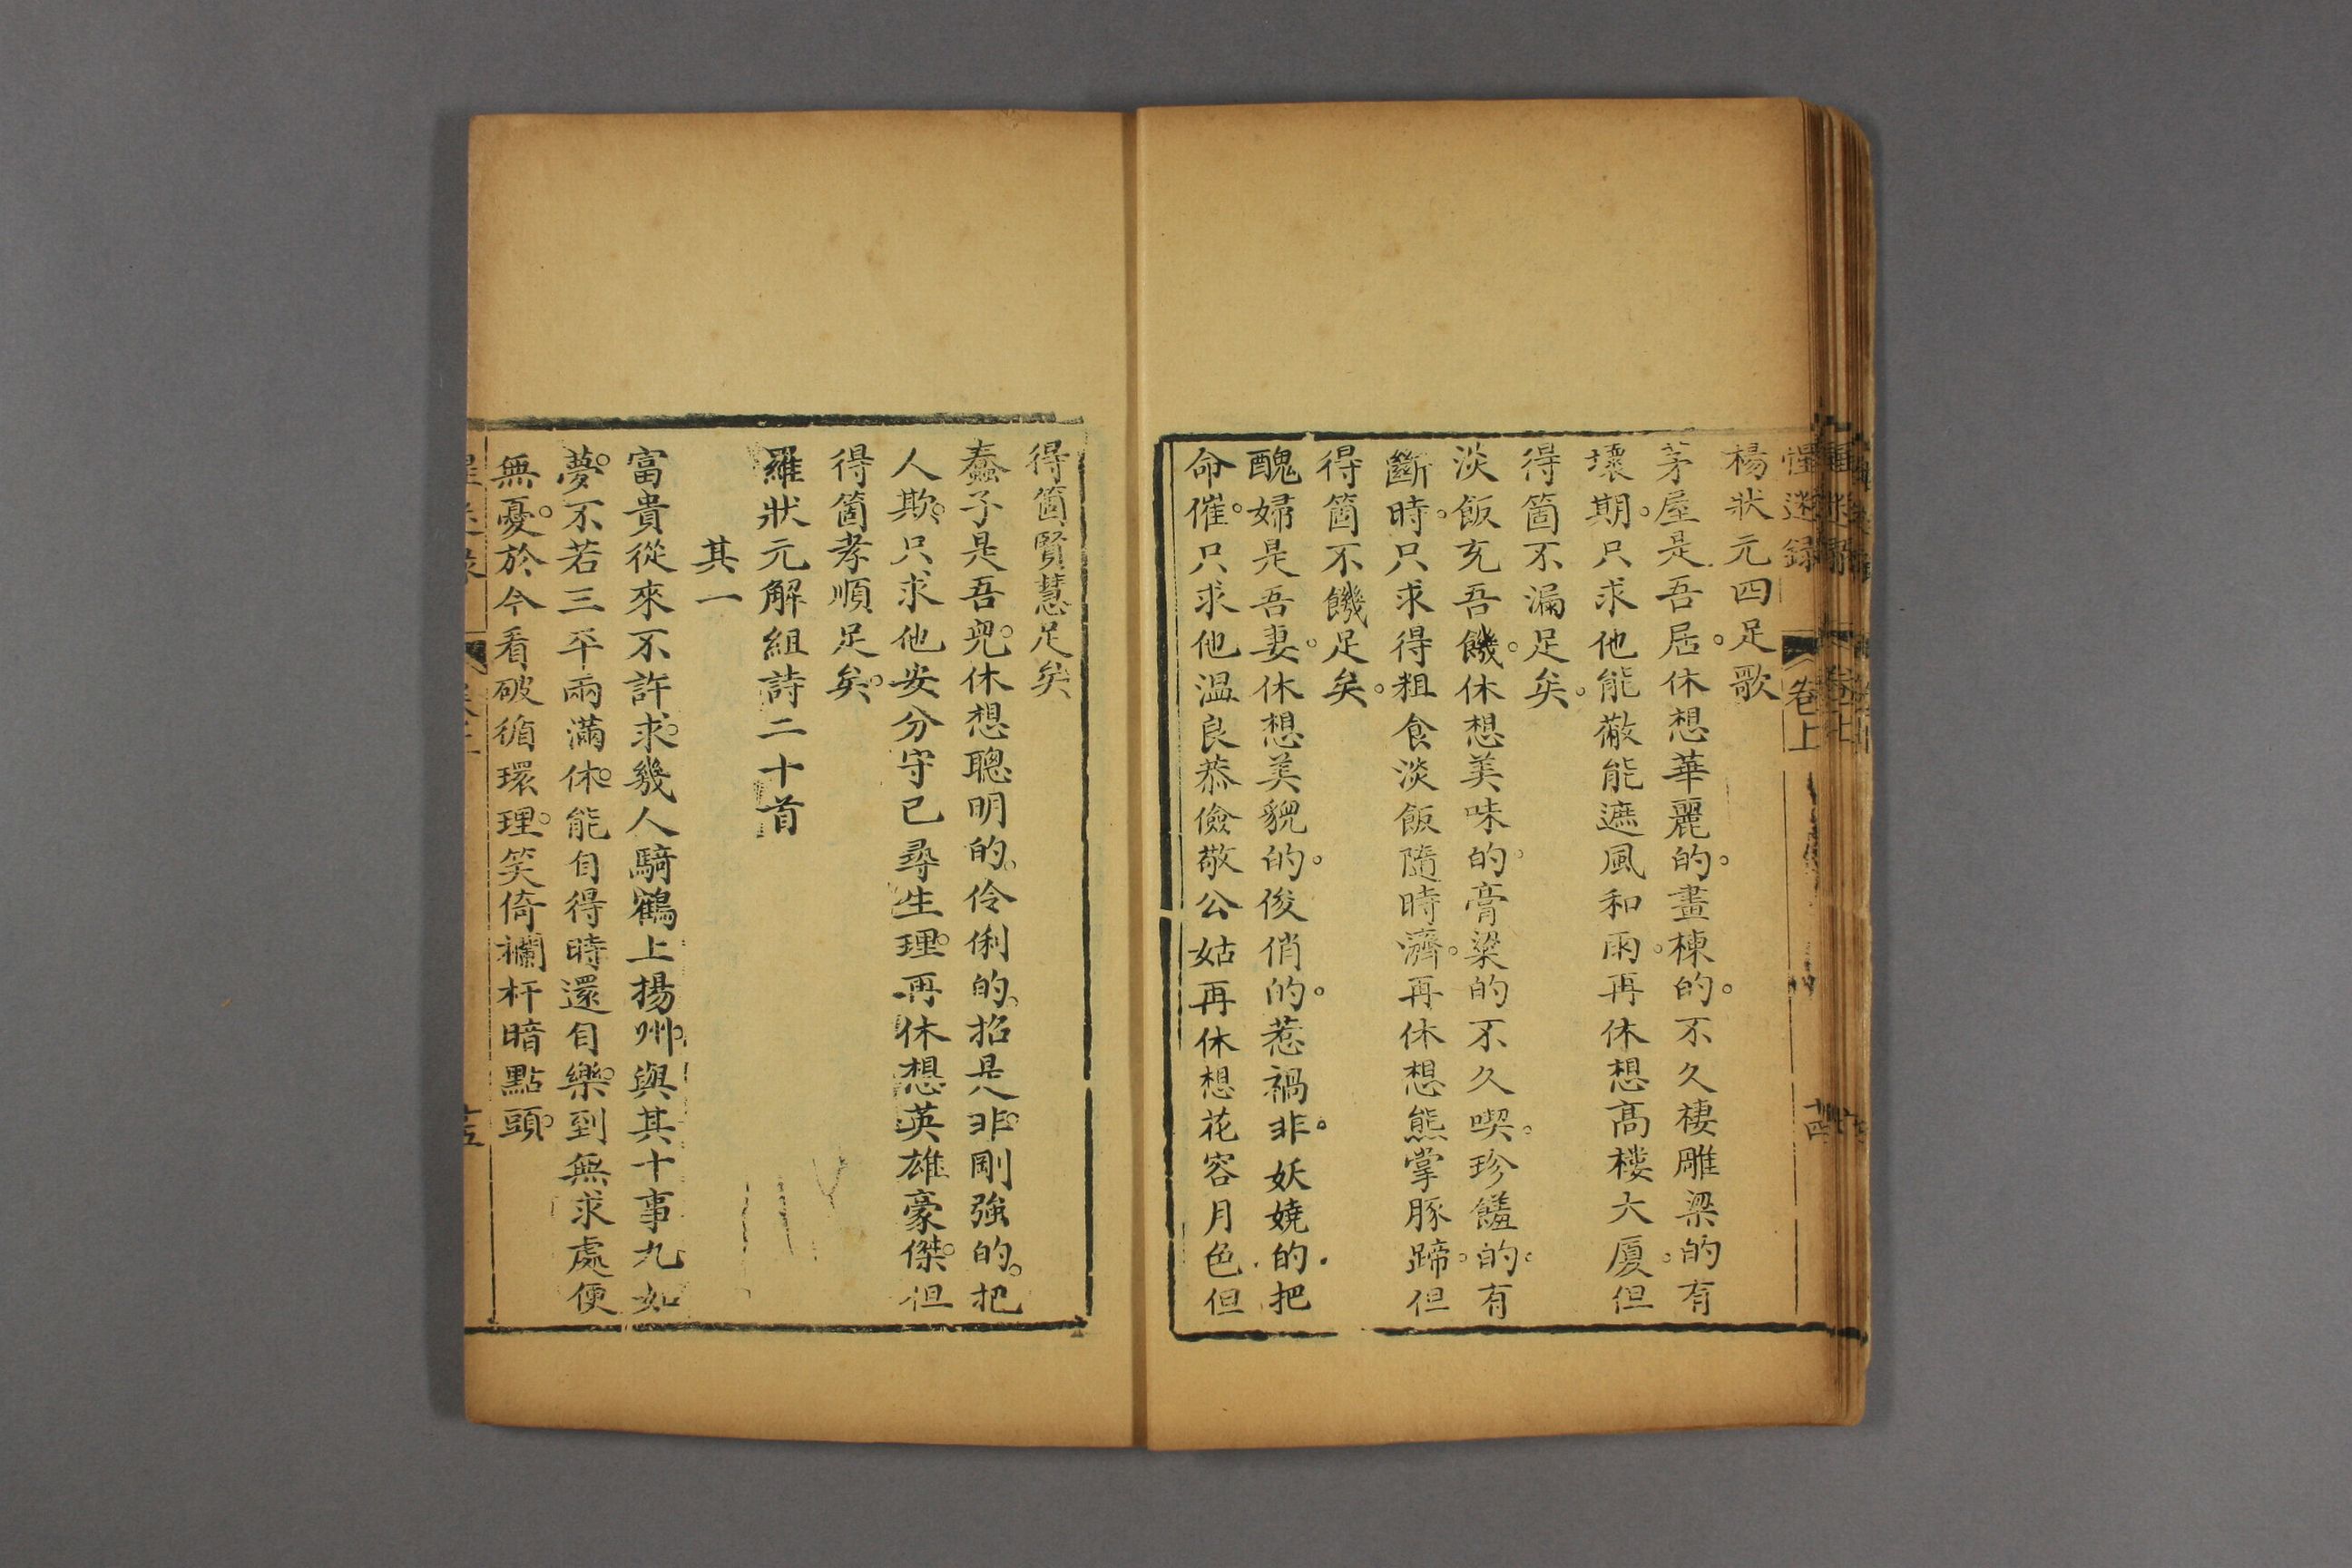 惺迷録 卷上 十四
楊狀元四足歌
茅屋是吾居。休想華麗的。畫棟的。不久棲雕梁的有
壞期。只求他能蔽能遮風和雨。再休想高樓大厦。但
得箇不漏足矣。
淡飯充吾饑。休想美味的。膏粱的不久喫。珍饈的。有
斷時。只求得粗食淡飯隨時濟。再休想熊掌豚蹄。但
得箇不饑足矣。
醜婦是吾妻。休想美貌的。俊俏的。惹禍非。妖嬈的。把
命催。只求他温良恭儉敬公姑再休想花容月色。但
得箇賢慧足矣
蠢子是吾兒。休想聰明的。伶俐的。招是非。剛強的。把
人欺。只求他安分守己尋生理。再休想英雄豪傑。但
得箇孝順足矣。
羅狀元解組詩二十首
其一
富貴從來不許求。幾人騎鶴上揚州。與其十事九如
夢。不若三平兩滿休。能自得時還自樂。到無求處便
無憂。於今看破循環理。笑倚欄杆暗點頭。